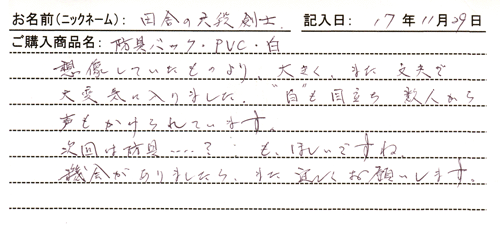 お名前(ニックネーム): 田舎の天殺剣士. 記入日: 17年11月29日
ご購入商品名: 防具バック・PVC・白
想像していたものより、大きく、また丈夫で
大変気に入りました。"白"も目立ち 数人から
声もかけられています。
次回は防具……? も、ほしいですね。
機会がありましたら、また宜しくお願いします。